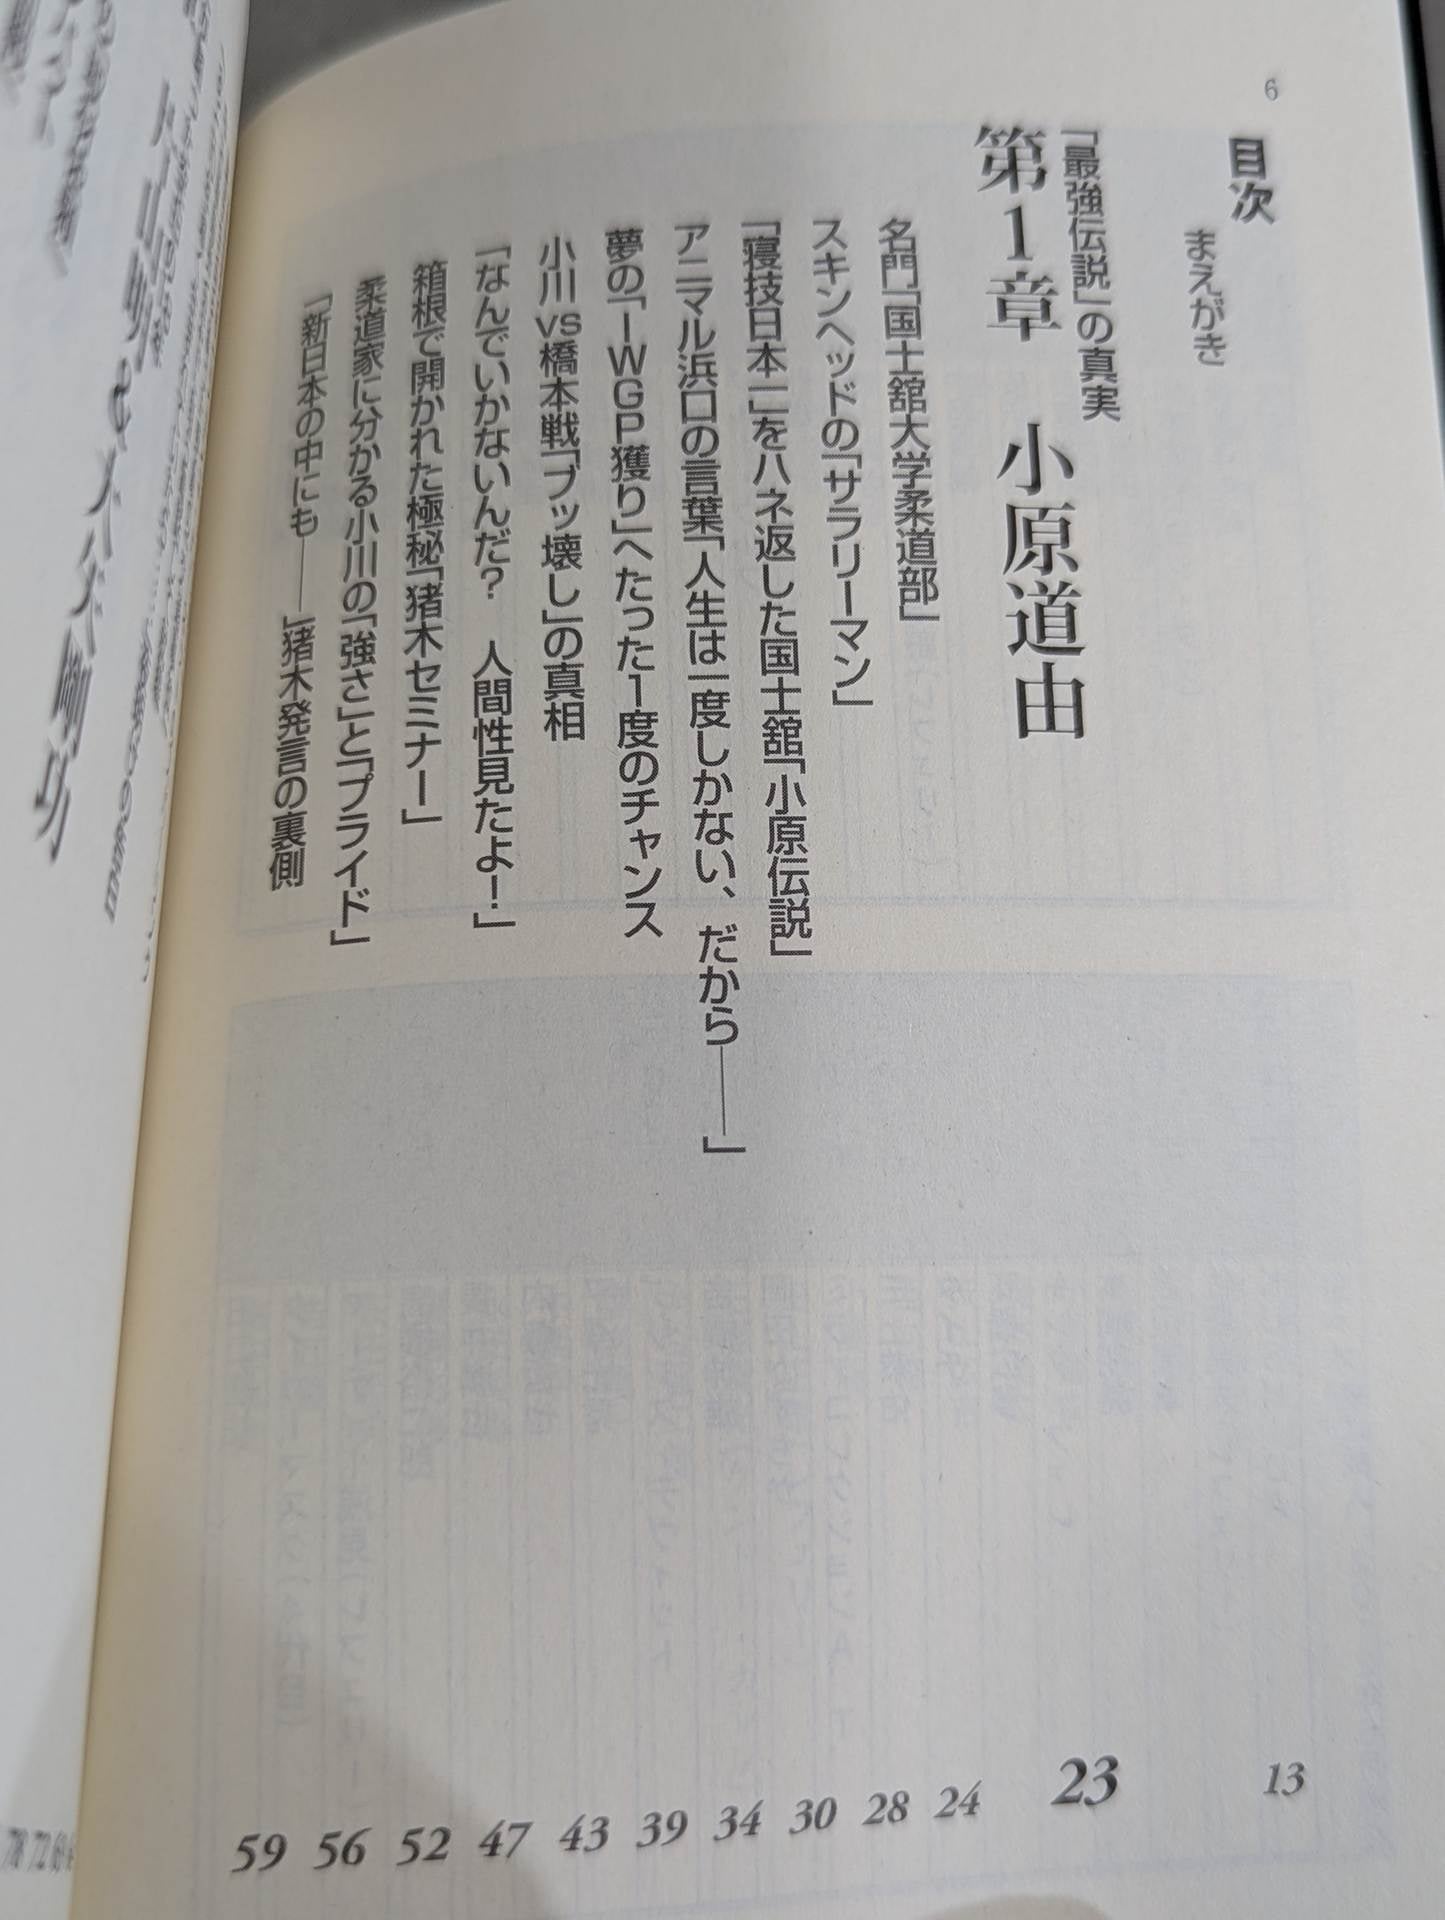 6
目次
まえがき
13
「最強伝説」の真実
第1章 小原道由
23
名門「国士舘大学柔道部」
24
スキンヘッドの「サラリーマン」
28
「寝技日本一」をハネ返した国士舘「小原伝説」
30
アニマル浜口の言葉「人生は一度しかない、だから――」
34
夢の「IWGP獲り」へたった1度のチャンス
39
小川vs橋本戦「ブッ壊し」の真相
43
「なんでいかないんだ? 人間性見たよ!」
47
箱根で開かれた極秘「猪木セミナー」
52
柔道家に分かる小川の「強さ」と「プライド」
56
「新日本の中にも――」猪木発言の裏側
59
78
72